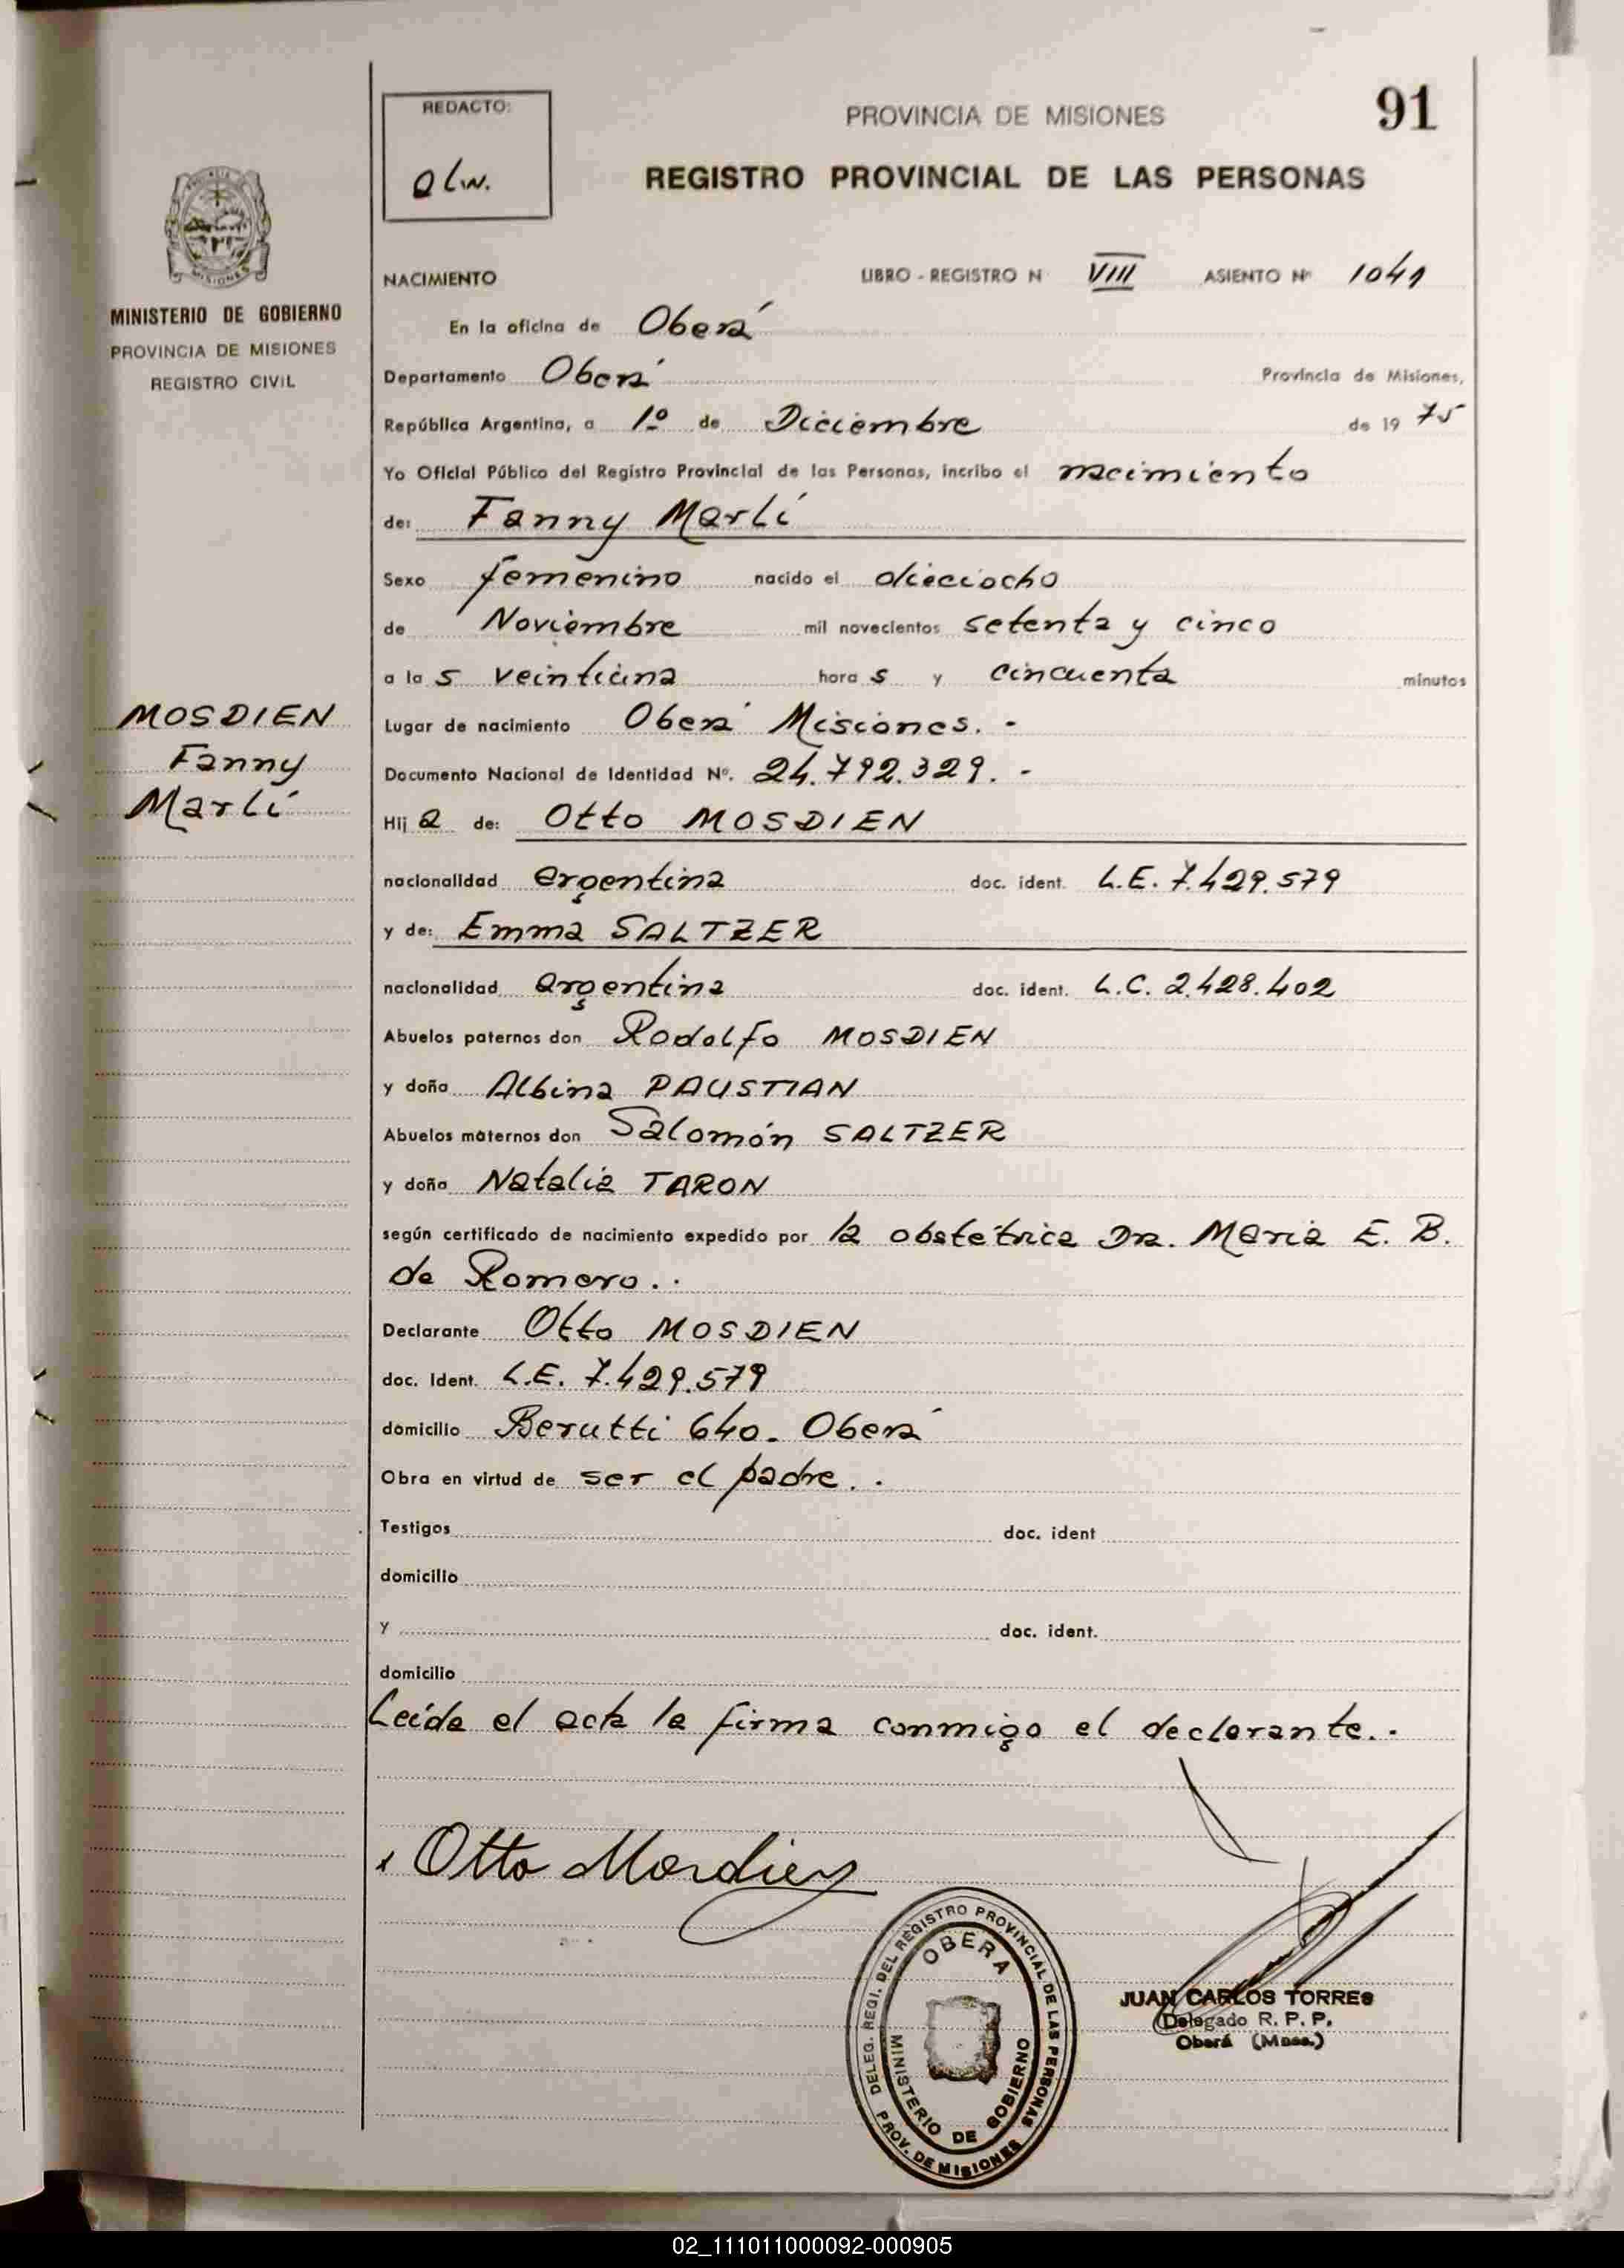 REDACTO:
PROVINCIA DE MISIONES
91
REGISTRO PROVINCIAL DE LAS PERSONAS
MISIONES
MINISTERIO DE GOBIERNO
PROVINCIA DE MISIONES
REGISTRO CIVIL
NACIMIENTO LIBRO - REGISTRO N VIII ASIENTO Nº 1041
En la oficina de Oberá
Departamento Oberá Provincia de Misiones,
República Argentina, a 1º de Diciembre de 19 75
Yo Oficial Público del Registro Provincial de las Personas, incribo el nacimiento
de: Fanny Marlí
Sexo femenino nacido el dieciocho
de Noviembre mil novecientos setenta y cinco
a la s veintiuna hora s y cincuenta minutos
MOSDIEN
Fanny
Marlí
Lugar de nacimiento Oberá Misiones. -
Documento Nacional de Identidad Nº. 24.792.329. -
Hij a de: Otto MOSDIEN
nacionalidad argentina doc. ident. L.E. 7.429.579
y de: Emma SALTZER
nacionalidad argentina doc. ident. L.C. 2.428.402
Abuelos paternos don Rodolfo MOSDIEN
y doña Albina PAUSTIAN
Abuelos maternos don Salomón SALTZER
y doña Natalia TARON
según certificado de nacimiento expedido por la obstétrica Dra. Maria E. B.
de Romero. .
Declarante Otto MOSDIEN
doc. Ident. L.E. 7.429.579
domicilio Berutti 640. Oberá
Obra en virtud de ser el padre. .
Testigos doc. ident
domicilio
y doc. ident.
domicilio
Leída el acta la firma conmigo el declarante. -
x Otto Mosdien
DELEG. REGI. DEL REGISTRO PROVINCIAL DE LAS PERSONAS
OBERA
MINISTERIO DE GOBIERNO
PROV. DE MISIONES
JUAN CARLOS TORRES
Delegado R. P. P.
Oberá (Mnes.)
02_111011000092-000905